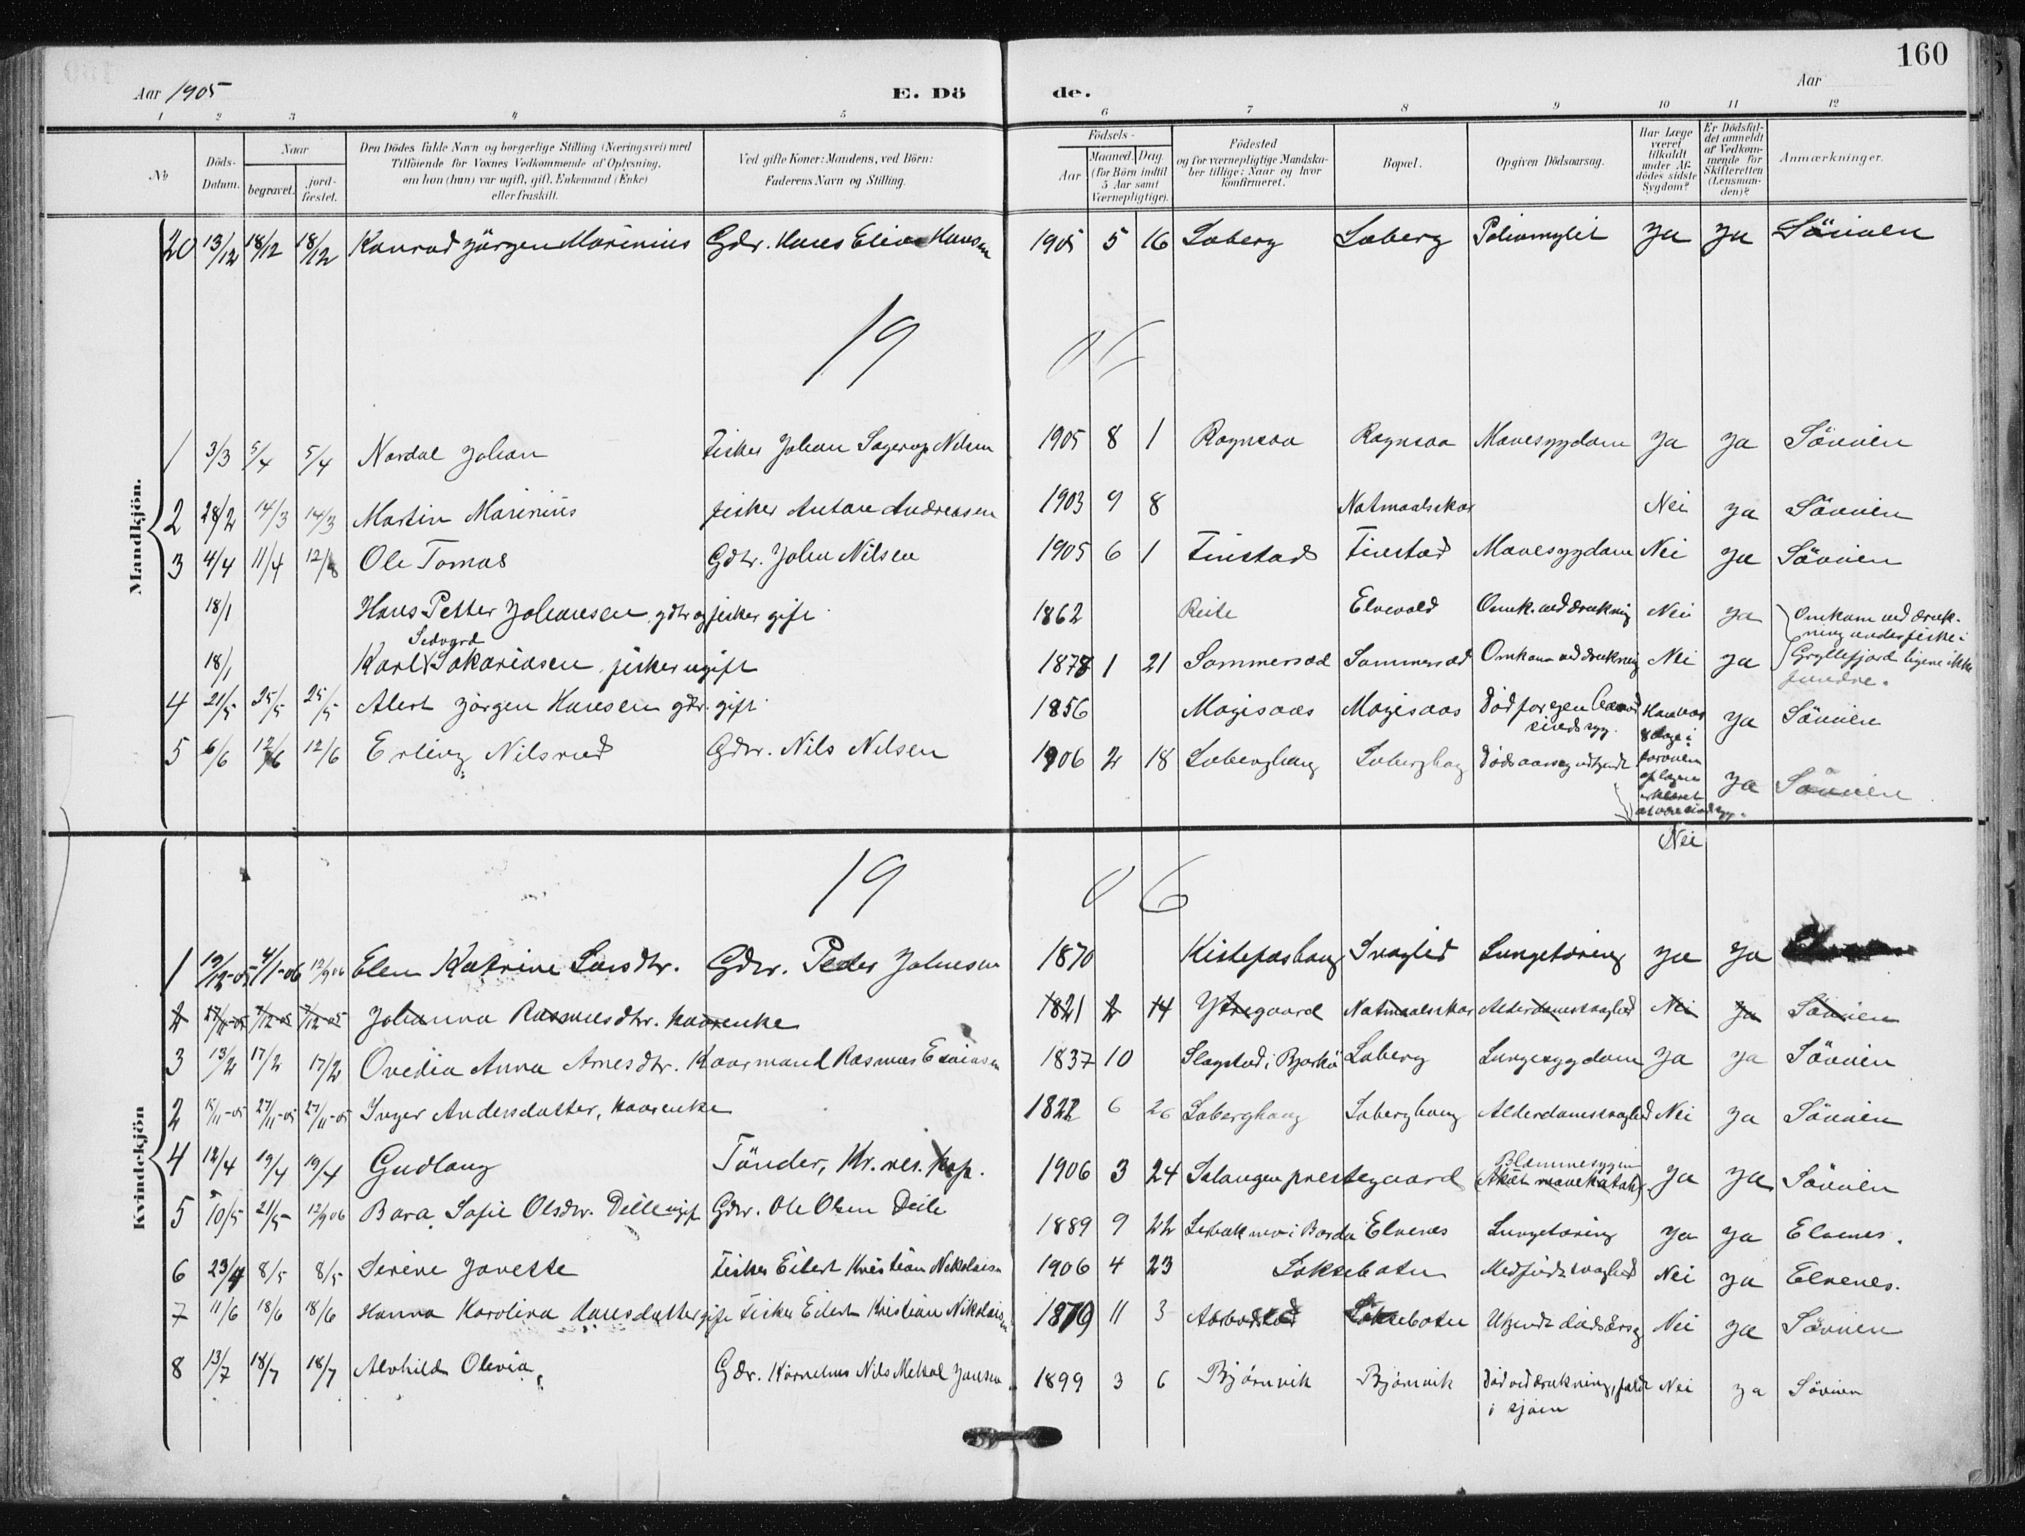 160
Aar 1905 E. Dö de. Aar
1 2 3 4 5 6 7 8 9 10 11 12
No
Döds-Datum.
Naar
begravet.
jord-fæstet.
Den Dödes fulde Navn og borgerlige Stilling (Næringsvei) med
Tilföiende for Voxnes Vedkommende af Oplysning,
om han (hun) var ugift, gift, Enkemand (Enke)
eller fraskilt.
Ved gifte Koner: Mandens, ved Börn:
Faderens Navn og Stilling.
Födsels-
Aar
Maaned. Dag.
(for Börn indtil
5 Aar samt
Værnepligtige).
Födested
og for værnepligtige Mandska-
ber tillige: Naar og hvor
konfirmeret.
Bopæl.
Opgiven Dödsaarsag.
Har Læge
været
tilkaldt
under Af-
dödes sidste
Sygdom?
Er Dödsfal-
det anmeldt
af Vedkom-
mende for
Skifteretten
(Lensman-
den)?
Anmærkninger.
Mandkjön.
20 13/12 18/12 18/12 Konrad Jörgen Marinius Gdr. Hans Elias Hansen 1905 5 16 Soberg Soberg Poliomylit Ja Ja Söveien
19 05
1 3/3 5/4 5/4 Nordal Johan Fisker Johan Nilsen 1905 8 1 Rognsaa Rognsaa Mavesygdom Ja Ja Söveien
2 28/2 14/3 14/3 Martin Marinius fisker Anton Andreasen 1903 9 8 Notmaalsskar Nei Ja Söveien
3 4/4 11/4 12/8 Ole Tomas Gdr. Johan Nilsen 1905 6 1 Finstad Finstad Mavesygdom Nei Ja Söveien
18/1 Hans Petter Johansen, gdr og fisker gift. 1862 Elvevold Omk. ved drukning Nei Ja Omkom ved druk-
ning under fiske i
Gryllefjord ligene ikke
fundne.
18/1 Karl Sedvard Sakariasen, fisker ugift 1878 1 21 Sommersæd Sommersæd Omkom ved drukning Nei Ja
4 21/5 25/5 25/5 Alert Jörgen Hansen gdr. gift. 1856 Mogisaas Mogisaas Ja Söveien
5 6/6 12/6 12/6 Erling Nilsrud Gdr. Nils Nilsen 1906 2 18 Soberghaug Soberghaug Dödsaarsag udkjendt Ja Söveien
Nei
Kvindekjön
19 06
1 19/12-05 4/1-06 12/9 06 Elen Katrine Larsdtr. Gdr. Peder Johnsen 1870 Kistefoshaug Svaglid Lungetæring Ja Ja
2 27/11-05 7/12-05 7/12-05 Johanna Rasmusdtr. kaarenke 1821 2 14 Ytregaard Notmaalsskar Alderdomssvaghed Nei Ja Söveien
3 13/2 17/2 17/2 Ovedia Anna Arnesdtr. Kaarmand Rasmus Esaiasen 1837 10 Slagstad i Bjarkö Soberg Lungesygdom Ja Ja Söveien
2 15/11-05 27/11-05 27/11-05 Inger Andersdatter, kaarenke 1822 6 26 Soberghaug Soberghaug Alderdomssvaghed Nei Ja Söveien
4 12/4 19/4 19/4 Gudlaug Tönder, Kr. res. Kap. 1906 3 24 Salangen prestegaard (Akut mavekatah) Ja Ja Söveien
5 10/5 21/5 12/9 06 Bara Sofie Olsdtr. Deile ugift Gdr. Ole Olsen Deile 1889 9 22 i Bardu Elvenes Lungetæring Ja Ja Elvenes.
6 23/4 8/5 8/5 Serine Janette Fisker Eilert Kristian Nikolaisen 1906 4 23 Loksebotn Medfödt svaghed Nei Ja Elvenes.
7 11/6 18/6 18/6 Hanna Karolina Hansdatter gift Fisker Eilert Kristian Nikolaisen 1879 11 3 Loksebotn Ukjendt dödsårsag Nei Ja Söveien
8 13/7 18/7 18/7 Alvhild Olevia Gdr. Kornelius Nils Mekal Jensen 1899 3 6 Bjørnvik Bjørnvik Död ved drukning, faldt
i sjøen Nei Ja Söveien